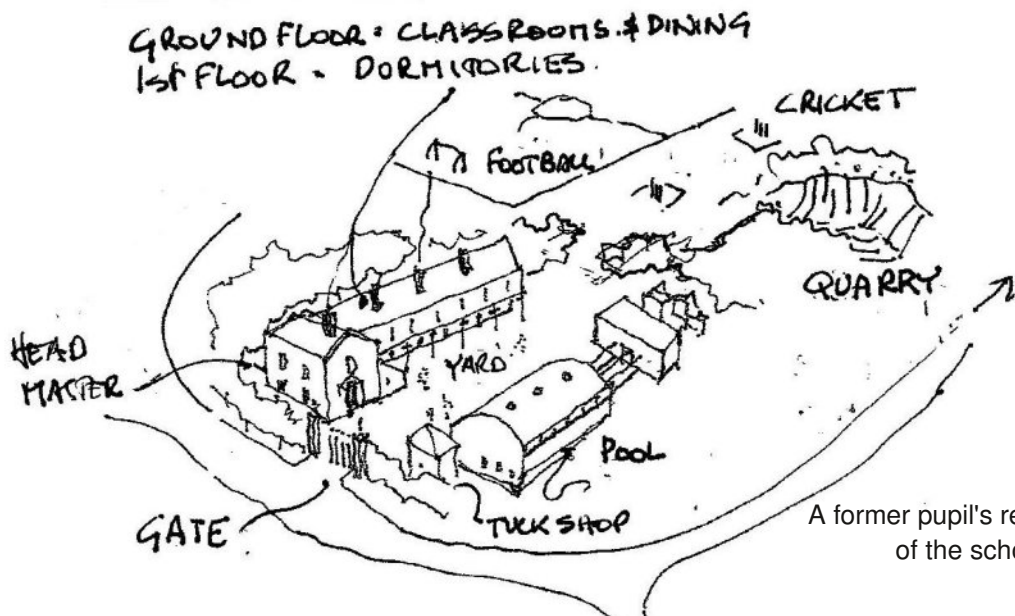 GROUND FLOOR: CLASSROOMS & DINING
1st FLOOR - DORMITORIES.
CRICKET
FOOTBALL
QUARRY
HEAD
MASTER
YARD
POOL
TUCK SHOP
GATE
A former pupil's re
of the scho